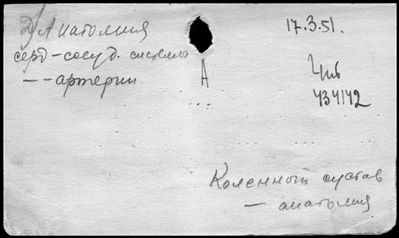 Д/Анатомия
серд-сосуд. система
——артерии
17.3.51.
А
434142
Коленный сустав
— анатомия